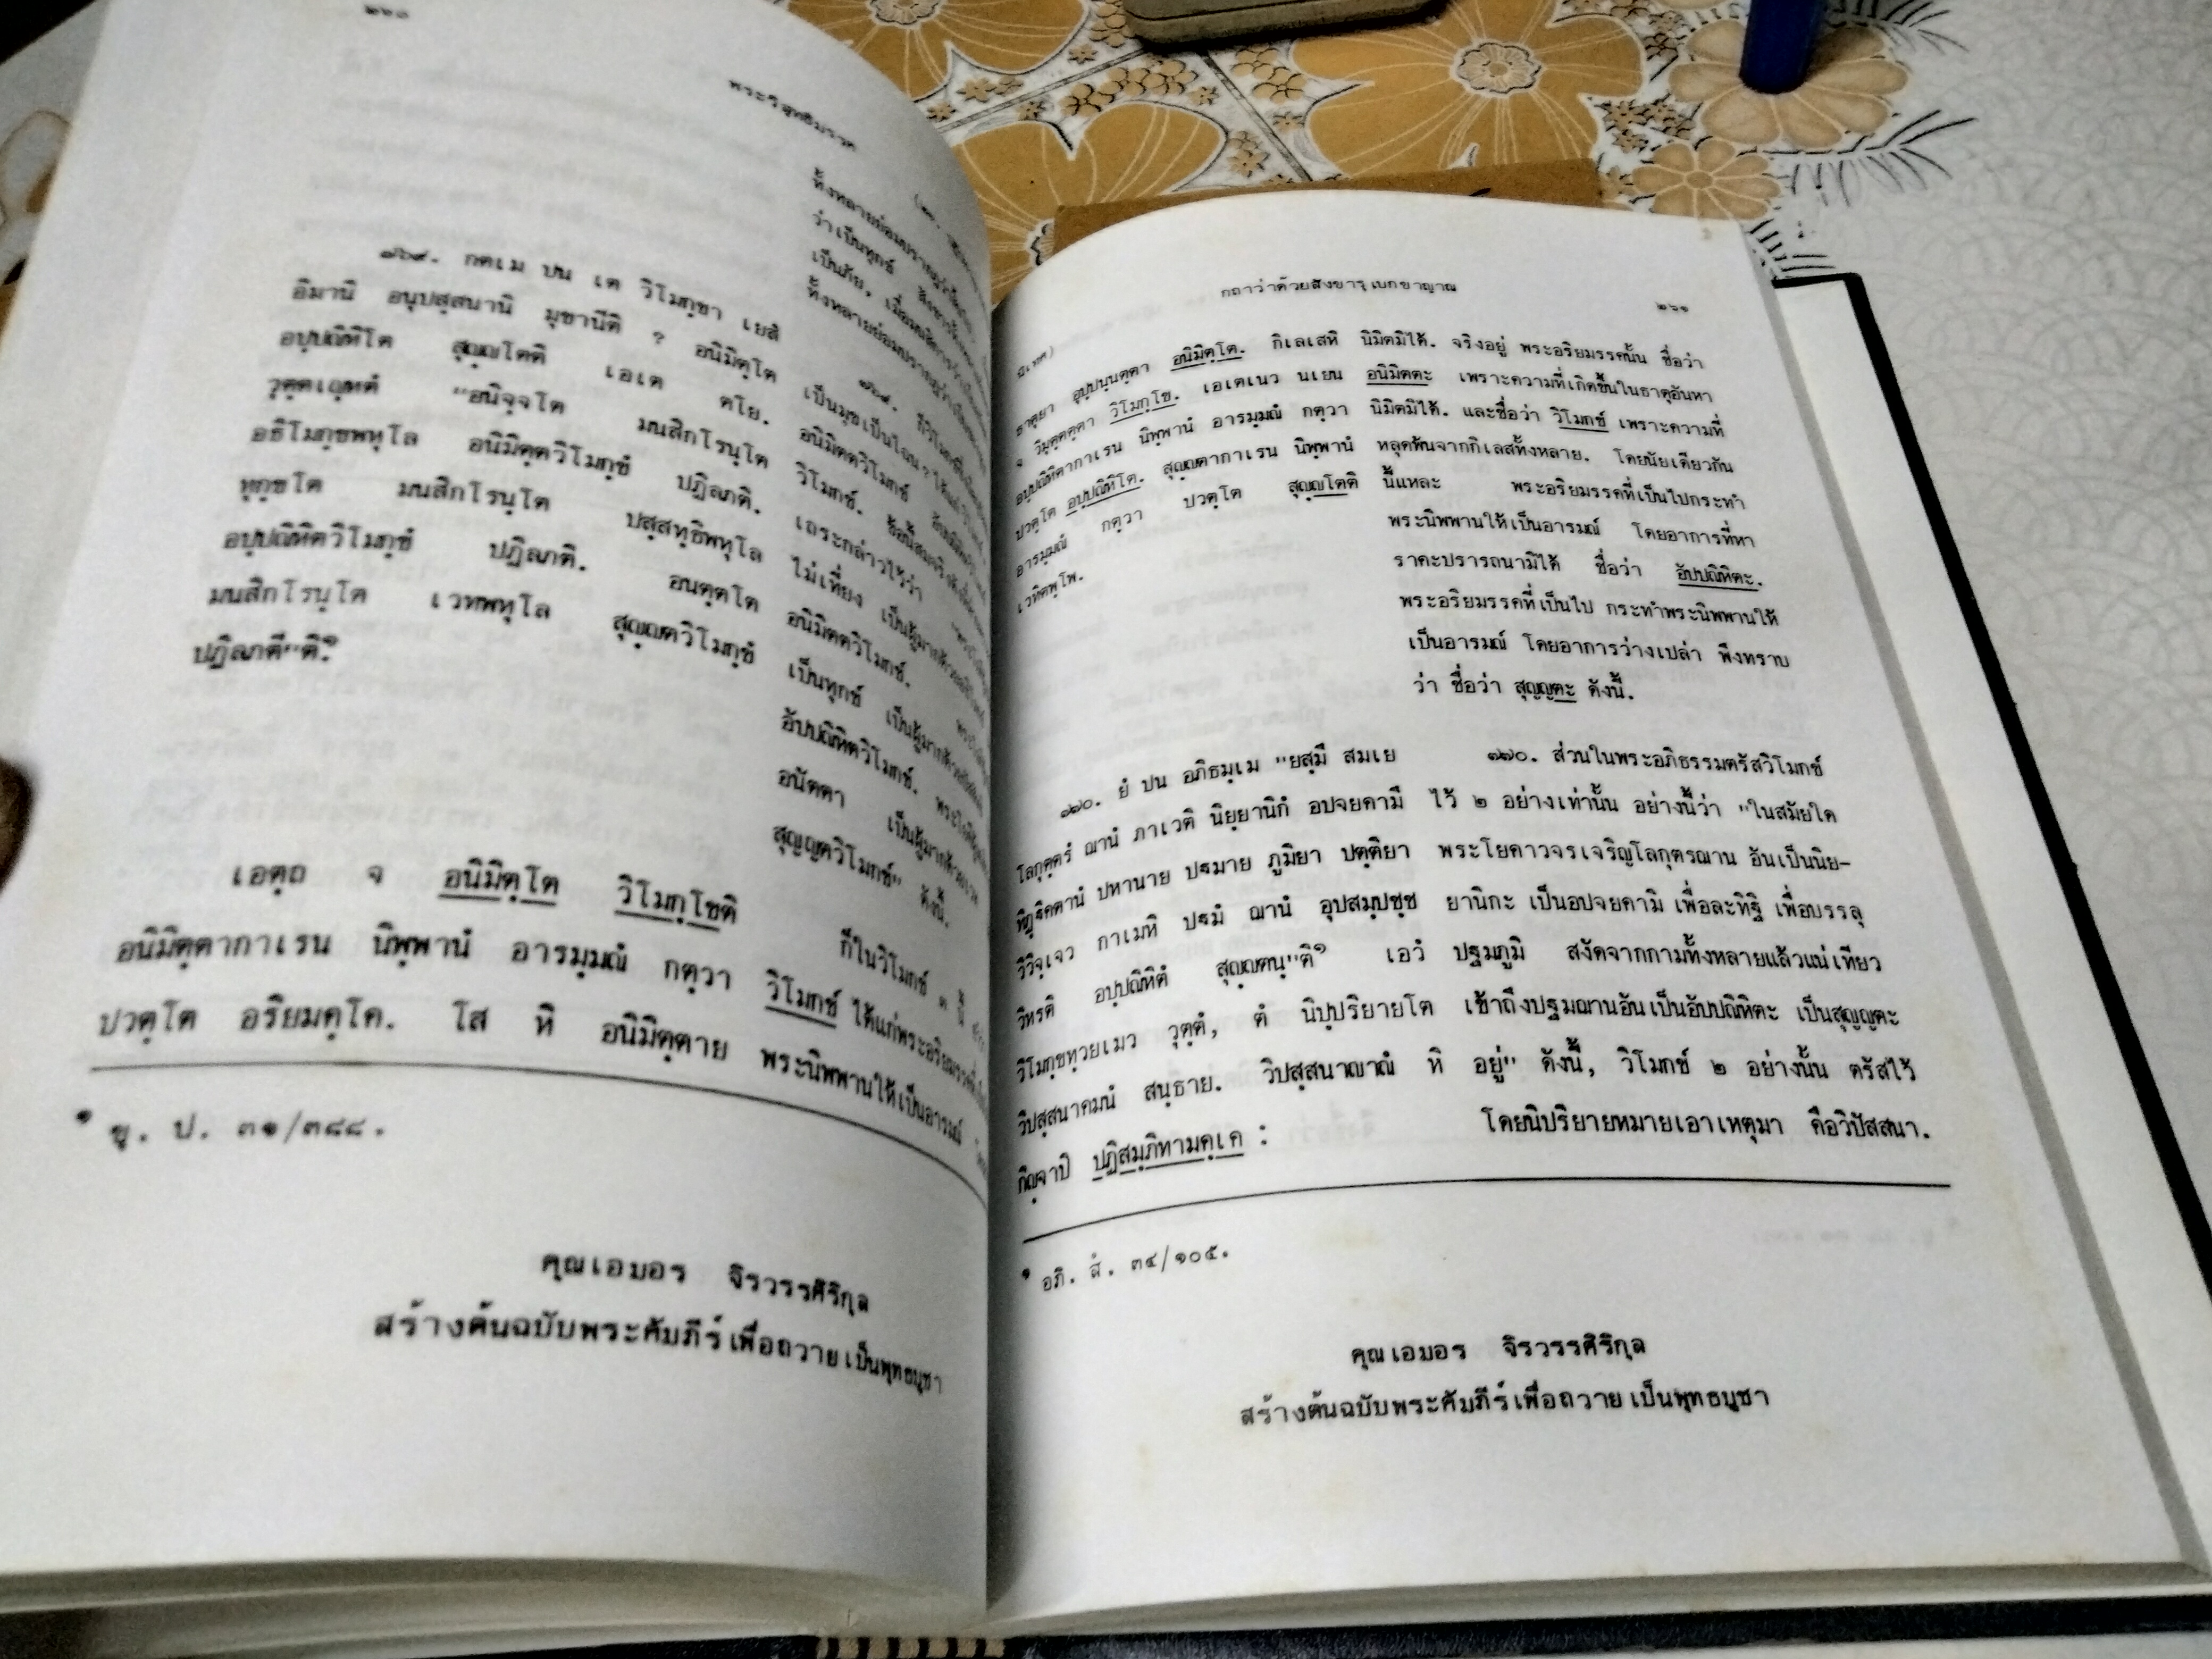 ๒๖๐
พระวิสุทธิมรรค
๗๖๙. กตเม ปน เต วิโมกฺขา เยสํ
อิมานิ อนุปสฺสนานิ มุขานีติ ? อนิมิตฺโต
อปฺปณิหิโต สุญฺญโตติ เอเต ตโย.
วุตฺตเญฺหตํ "อนิจฺจโต มนสิกโรนฺโต
อธิโมกฺขพหุโล อนิมิตฺตวิโมกฺขํ ปฏิลภติ.
ทุกฺขโต มนสิกโรนฺโต ปสฺสทฺธิพหุโล
อปฺปณิหิตวิโมกฺขํ ปฏิลภติ. อนตฺตโต
มนสิกโรนฺโต เวทพหุโล สุญฺญตวิโมกฺขํ
ปฏิลภตี"ติ.๑
เอตฺถ จ อนิมิตฺโต วิโมกฺโขติ
อนิมิตฺตากาเรน นิพฺพานํ อารมฺมณํ กตฺวา
ปวตฺโต อริยมคฺโค. โส หิ อนิมิตฺตาย
ทั้งหลายย่อมปรากฏ
ว่าเป็นทุกข์
เป็นภัย, เมื่อมนสิการ
ทั้งหลายย่อมปรากฏ
๗๖๙. ก็วิโมกข์
เป็นมุขเป็นไฉน ? ได้แก่
อนิมิตตวิโมกข์
วิโมกข์. ข้อนี้สมจริง
เถระกล่าวไว้ว่า
ไม่เที่ยง เป็นผู้มากด้วย
อนิมิตตวิโมกข์.
เป็นทุกข์ เป็นผู้มากด้วย
อัปปณิหิตวิโมกข์.
อนัตตา เป็นผู้มากด้วย
สุญญตวิโมกข์" ดังนี้.
ก็ในวิโมกข์ ๓ นี้
วิโมกข์ ได้แก่พระอริยมรรค
พระนิพพานให้เป็นอารมณ์
๑ ขุ. ป. ๓๑/๓๘๘.
คุณเอมอร จิรวรรศิริกุล
สร้างต้นฉบับพระคัมภีร์เพื่อถวายเป็นพุทธบูชา
กถาว่าด้วยสังขารุเบกขาญาณ
๒๖๑
นิเทศ)
ธาตุยา อุปฺปนฺนตฺตา อนิมิตฺโต. กิเลเสหิ
จ วิมุตฺตตฺตา วิโมกฺโข. เอเตเนว นเยน
อปฺปณิหิตากาเรน นิพฺพานํ อารมฺมณํ กตฺวา
ปวตฺโต อปฺปณิหิโต. สุญฺญตากาเรน นิพฺพานํ
อารมฺมณํ กตฺวา ปวตฺโต สุญฺญโตติ
เวทิตพฺโพ.
นิมิตมิได้. จริงอยู่ พระอริยมรรคนั้น ชื่อว่า
อนิมิตตะ เพราะความที่เกิดขึ้นในธาตุอันหา
นิมิตมิได้. และชื่อว่า วิโมกข์ เพราะความที่
หลุดพ้นจากกิเลสทั้งหลาย. โดยนัยเดียวกัน
นี้แหละ พระอริยมรรคที่เป็นไปกระทำ
พระนิพพานให้เป็นอารมณ์ โดยอาการที่หา
ราคะปรารถนามิได้ ชื่อว่า อัปปณิหิตะ.
พระอริยมรรคที่เป็นไป กระทำพระนิพพานให้
เป็นอารมณ์ โดยอาการว่างเปล่า พึงทราบ
ว่า ชื่อว่า สุญญตะ ดังนี้.
๗๗๐. ยํ ปน อภิธมฺเม "ยสฺมึ สมเย
โลกุตฺตรํ ฌานํ ภาเวติ นิยฺยานิกํ อปจยคามึ
ทิฏฺฐิคตานํ ปหานาย ปฐมาย ภูมิยา ปตฺติยา
วิวิจฺเจว กาเมหิ ปฐมํ ฌานํ อุปสมฺปชฺช
วิหรติ อปฺปณิหิตํ สุญฺญตนฺ"ติ๑ เอวํ
วิโมกฺขทฺวยเมว วุตฺตํ, ตํ นิปฺปริยายโต
วิปสฺสนาคมนํ สนฺธาย. วิปสฺสนาญาณํ หิ
กิญฺจาปิ ปฏิสมฺภิทามคฺเค :
๗๗๐. ส่วนในพระอภิธรรมตรัสวิโมกข์
ไว้ ๒ อย่างเท่านั้น อย่างนี้ว่า "ในสมัยใด
พระโยคาวจรเจริญโลกุตรฌาน อันเป็นนิย-
ยานิกะ เป็นอปจยคามิ เพื่อละทิฐิ เพื่อบรรลุ
ปฐมภูมิ สงัดจากกามทั้งหลายแล้วแน่เทียว
เข้าถึงปฐมฌานอันเป็นอัปปณิหิตะ เป็นสุญญตะ
อยู่" ดังนี้, วิโมกข์ ๒ อย่างนั้น ตรัสไว้
โดยนิปริยายหมายเอาเหตุมา คือวิปัสสนา.
๑ อภิ. สํ. ๓๔/๑๐๕.
คุณเอมอร จิรวรรศิริกุล
สร้างต้นฉบับพระคัมภีร์เพื่อถวายเป็นพุทธบูชา